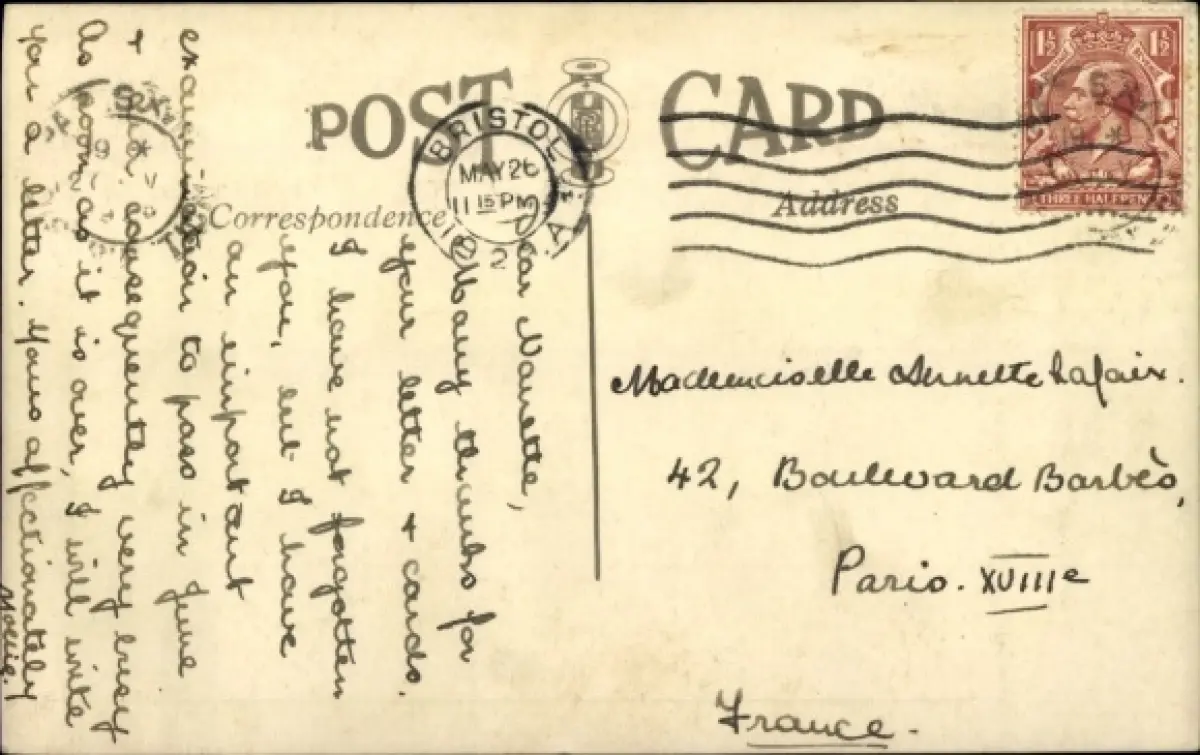 POST CARD
Correspondence
Address
BRISTOL
MAY 26
11 15 PM
1½ 1½
THREE HALFPENCE
Dear Nanette,
Many thanks for
your letter + cards.
I have not forgotten
you, but I have
an important
examination to pass in June
+ consequently very busy
As soon as it is over, I will write
you a letter. Yours affectionately
Mollie.
Mademoiselle
42, Boulevard Barbès,
Paris. XVIIIe
France.